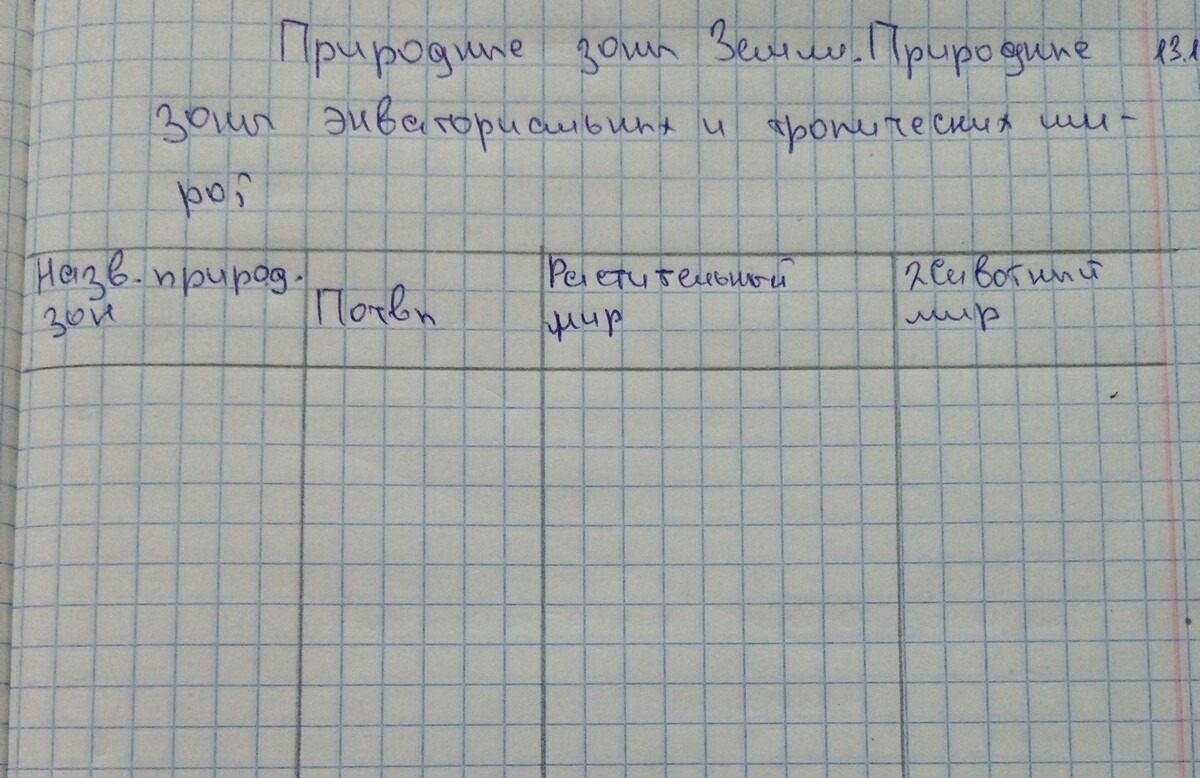 Природные зоны Земли. Природные 13.1
зоны экваториальных и тропических ши-
рот
Назв. природ. зон
Почвы
Растительный мир
Животный мир